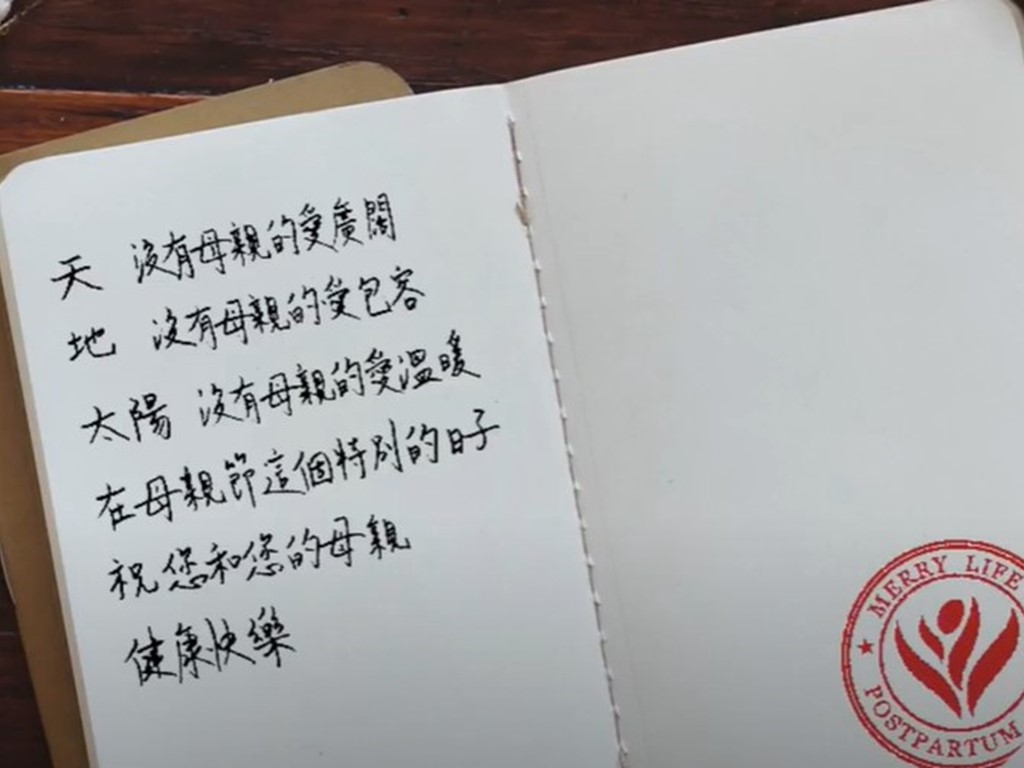 天 沒有母親的愛廣闊
地 沒有母親的愛包容
太陽 沒有母親的愛溫暖
在母親節這個特別的日子
祝您和您的母親
健康快樂
MERRY LIFE
POSTPARTUM